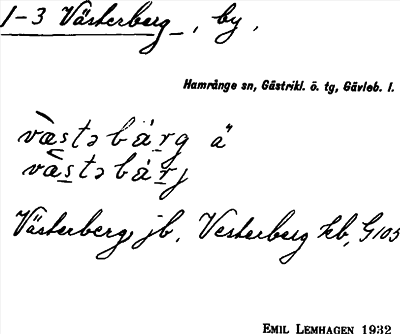 1-3 Västerberg, by,
Hamrånge sn, Gästrikl. ö. tg, Gävleb. l.
væ̀stəbärg ä"
væ̀stəbärj
Västerberg jb, Vesterberg kb, G105
EMIL LEMHAGEN 1932